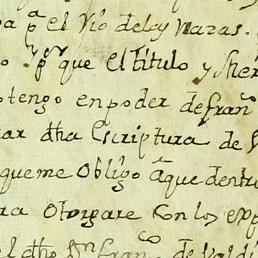 pᵃ el Rio de las Varas.
o y pʳ que el titulo y
tengo en poder de franᶜᵒ
dha Escriptura de
que me obligo â que dentro
ra otorgare con los exp
el dho Dⁿ franᶜᵒ de Valdi